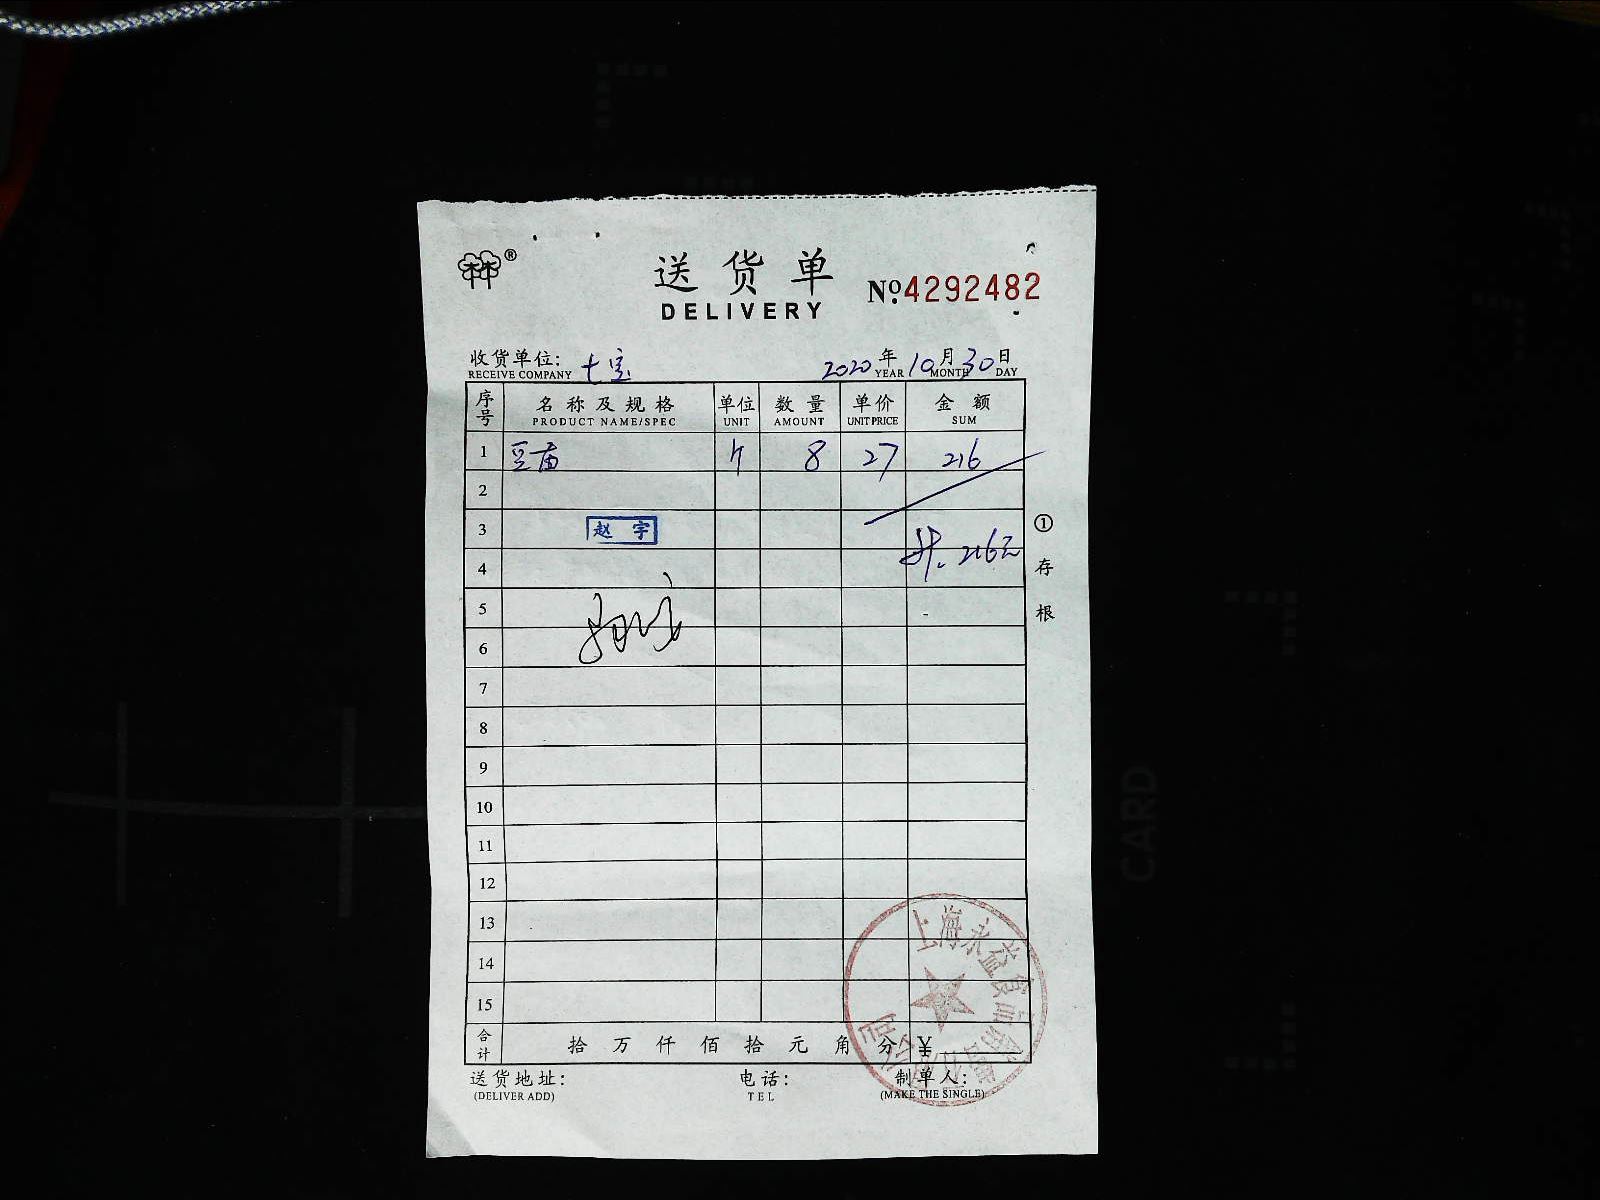 林®
送货单
DELIVERY
№4292482
收货单位: 七宝
RECEIVE COMPANY
2020年10月30日
YEAR MONTH DAY
序号 名称及规格 单位 数量 单价 金额
PRODUCT NAME/SPEC UNIT AMOUNT UNIT PRICE SUM
1 豆苗 8 27 216
2
3 赵宇
共 216元
4
5
6
7
8
9
10
11
12
13
14
15
合计 拾 万 仟 佰 拾 元 角 分 ¥
① 存根
上海永益食品有限公司
送货地址: 电话: 制单人:
(DELIVER ADD) TEL (MAKE THE SINGLE)
CARD